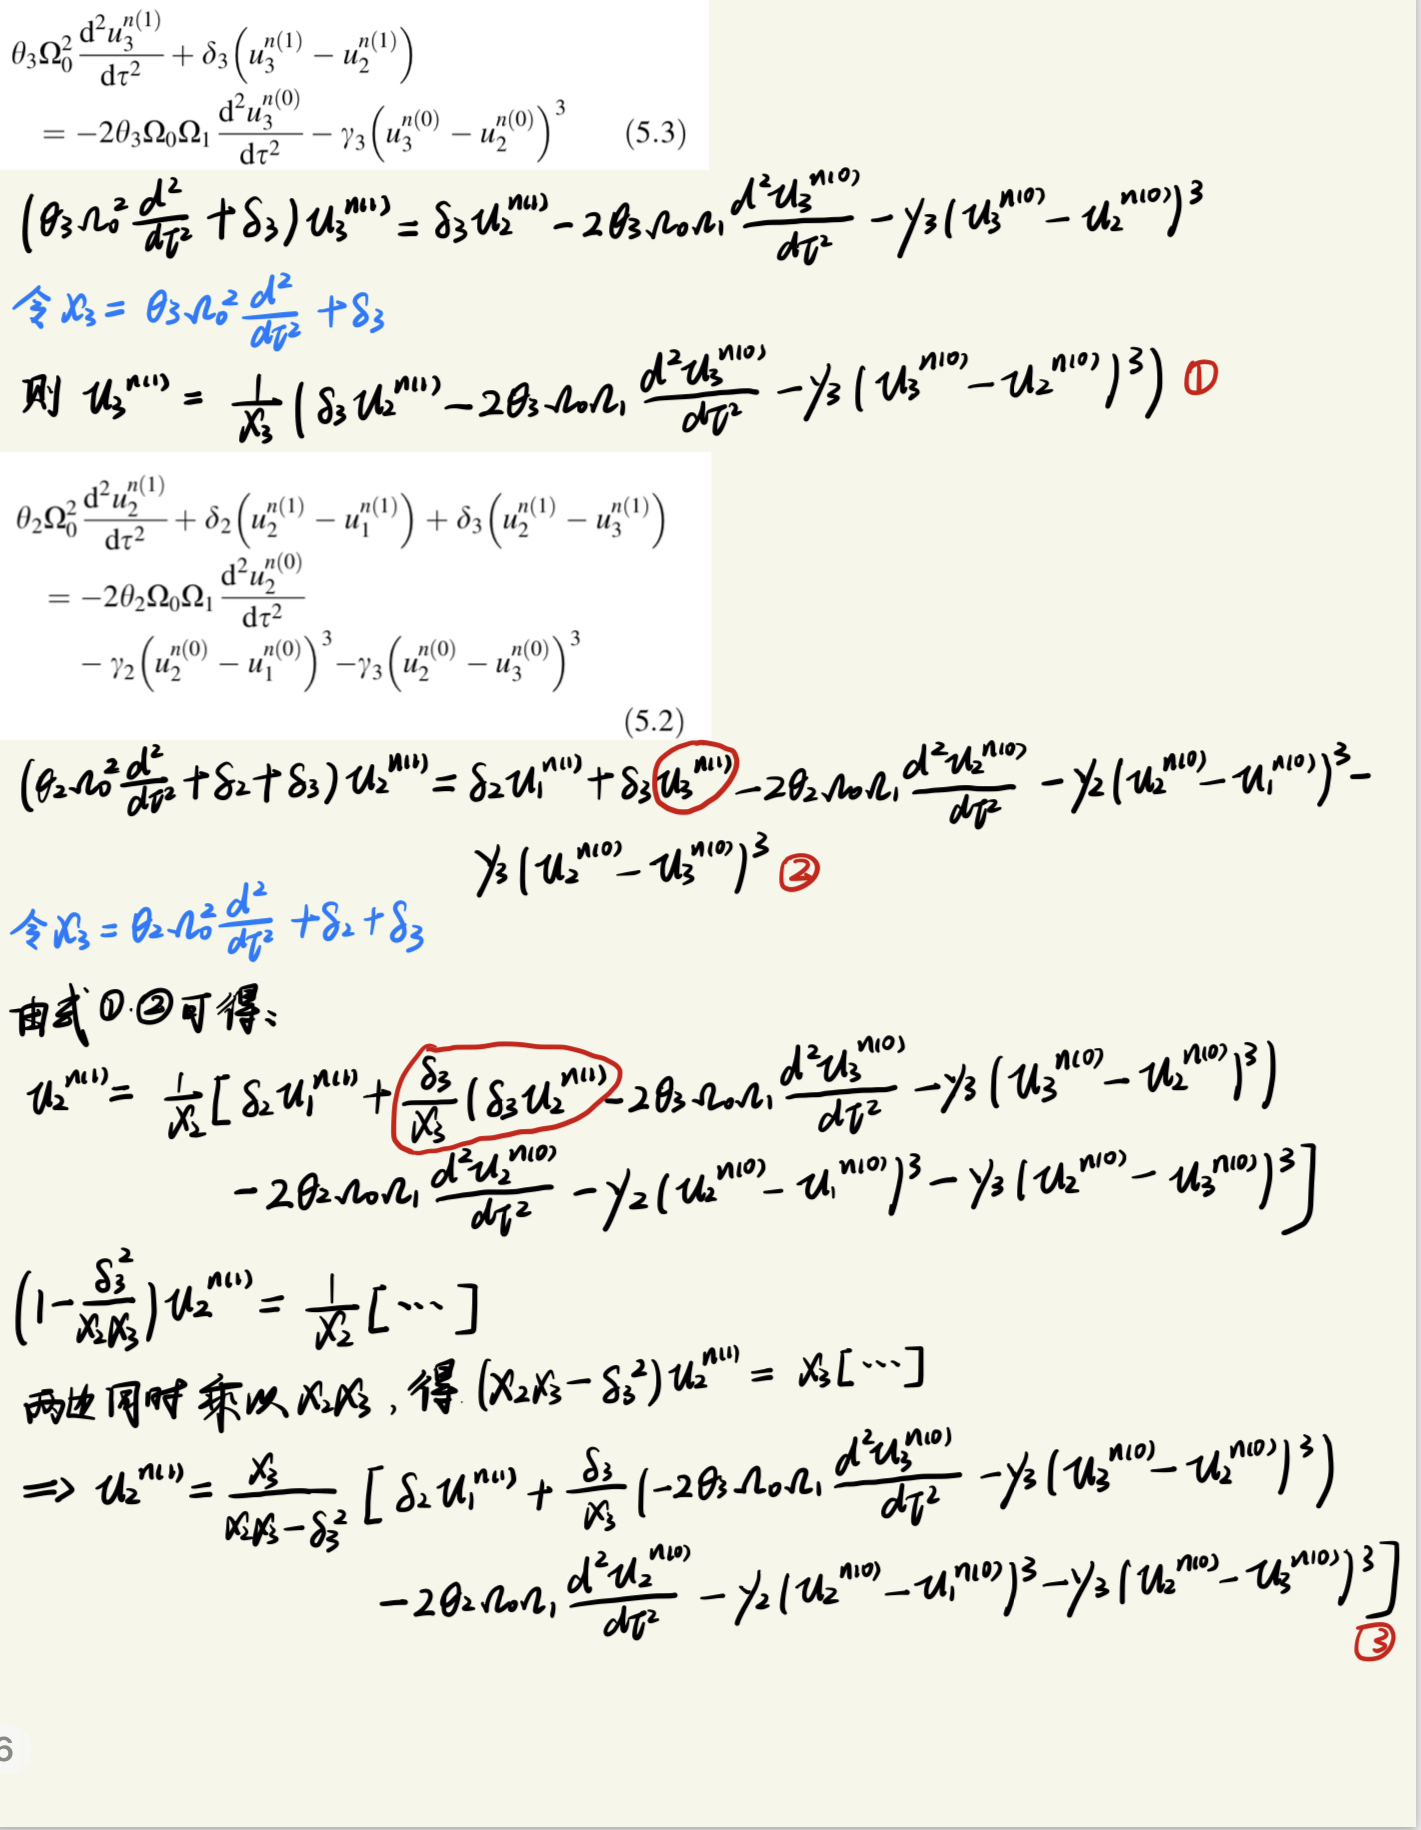 θ₃Ω₀² d²u₃ⁿ⁽¹⁾/dτ² + δ₃(u₃ⁿ⁽¹⁾ − u₂ⁿ⁽¹⁾)
= −2θ₃Ω₀Ω₁ d²u₃ⁿ⁽⁰⁾/dτ² − γ₃(u₃ⁿ⁽⁰⁾ − u₂ⁿ⁽⁰⁾)³ (5.3)
(θ₃Ω₀² d²/dτ² + δ₃) u₃ⁿ⁽¹⁾ = δ₃u₂ⁿ⁽¹⁾ − 2θ₃Ω₀Ω₁ d²u₃ⁿ⁽⁰⁾/dτ² − γ₃(u₃ⁿ⁽⁰⁾ − u₂ⁿ⁽⁰⁾)³
令 x₃ = θ₃Ω₀² d²/dτ² + δ₃
则 u₃ⁿ⁽¹⁾ = 1/x₃ (δ₃u₂ⁿ⁽¹⁾ − 2θ₃Ω₀Ω₁ d²u₃ⁿ⁽⁰⁾/dτ² − γ₃(u₃ⁿ⁽⁰⁾ − u₂ⁿ⁽⁰⁾)³) ①
θ₂Ω₀² d²u₂ⁿ⁽¹⁾/dτ² + δ₂(u₂ⁿ⁽¹⁾ − u₁ⁿ⁽¹⁾) + δ₃(u₂ⁿ⁽¹⁾ − u₃ⁿ⁽¹⁾)
= −2θ₂Ω₀Ω₁ d²u₂ⁿ⁽⁰⁾/dτ²
− γ₂(u₂ⁿ⁽⁰⁾ − u₁ⁿ⁽⁰⁾)³ −γ₃(u₂ⁿ⁽⁰⁾ − u₃ⁿ⁽⁰⁾)³
(5.2)
(θ₂Ω₀² d²/dτ² + δ₂ + δ₃) u₂ⁿ⁽¹⁾ = δ₂u₁ⁿ⁽¹⁾ + δ₃u₃ⁿ⁽¹⁾ − 2θ₂Ω₀Ω₁ d²u₂ⁿ⁽⁰⁾/dτ² − γ₂(u₂ⁿ⁽⁰⁾ − u₁ⁿ⁽⁰⁾)³ −
γ₃(u₂ⁿ⁽⁰⁾ − u₃ⁿ⁽⁰⁾)³ ②
令 x₃ = θ₂Ω₀² d²/dτ² + δ₂ + δ₃
由式①·②可得:
u₂ⁿ⁽¹⁾ = 1/x₂ [δ₂u₁ⁿ⁽¹⁾ + δ₃/x₃ (δ₃u₂ⁿ⁽¹⁾ − 2θ₃Ω₀Ω₁ d²u₃ⁿ⁽⁰⁾/dτ² − γ₃(u₃ⁿ⁽⁰⁾ − u₂ⁿ⁽⁰⁾)³)
− 2θ₂Ω₀Ω₁ d²u₂ⁿ⁽⁰⁾/dτ² − γ₂(u₂ⁿ⁽⁰⁾ − u₁ⁿ⁽⁰⁾)³ − γ₃(u₂ⁿ⁽⁰⁾ − u₃ⁿ⁽⁰⁾)³]
(1 − δ₃²/x₂x₃) u₂ⁿ⁽¹⁾ = 1/x₂ [⋯]
两边同时乘以 x₂x₃, 得 (x₂x₃ − δ₃²) u₂ⁿ⁽¹⁾ = x₃[⋯]
⇒ u₂ⁿ⁽¹⁾ = x₃/(x₂x₃ − δ₃²) [δ₂u₁ⁿ⁽¹⁾ + δ₃/x₃ (−2θ₃Ω₀Ω₁ d²u₃ⁿ⁽⁰⁾/dτ² − γ₃(u₃ⁿ⁽⁰⁾ − u₂ⁿ⁽⁰⁾)³)
− 2θ₂Ω₀Ω₁ d²u₂ⁿ⁽⁰⁾/dτ² − γ₂(u₂ⁿ⁽⁰⁾ − u₁ⁿ⁽⁰⁾)³ − γ₃(u₂ⁿ⁽⁰⁾ − u₃ⁿ⁽⁰⁾)³]
③
6